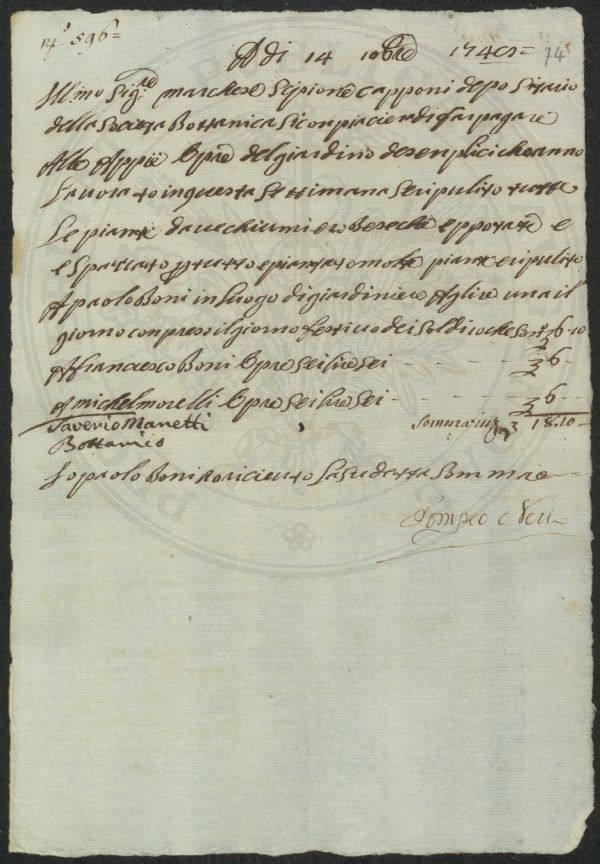 N.º 596=
Adi 14 10bre 1749= 74
Illmo Sig.re marchese Sipione capponi depo Sitario
della Società Bottanica Si conpiacierà di far pagare
Alle Appiè Opre del giardino de senplici che anno
Lavorato in questa Settimana e ripulito tutte
Le piante da vechiumi e e pportate e
e Spaccato e piantato molte piante e ripulito
A paolo Boni in luogo di giardiniere A lire una il
giorno conpreso il giorno festivo dei Soldi 6 10
A francesco Boni Opre sei lire sei - - - 6 -
A michel morelli Opre sei lire sei - - - 6 -
Saverio Manetti Somma in 18.10-
Bottanico
Io paolo Boni o riciento La Sudetta Somma
Pompeo Neri